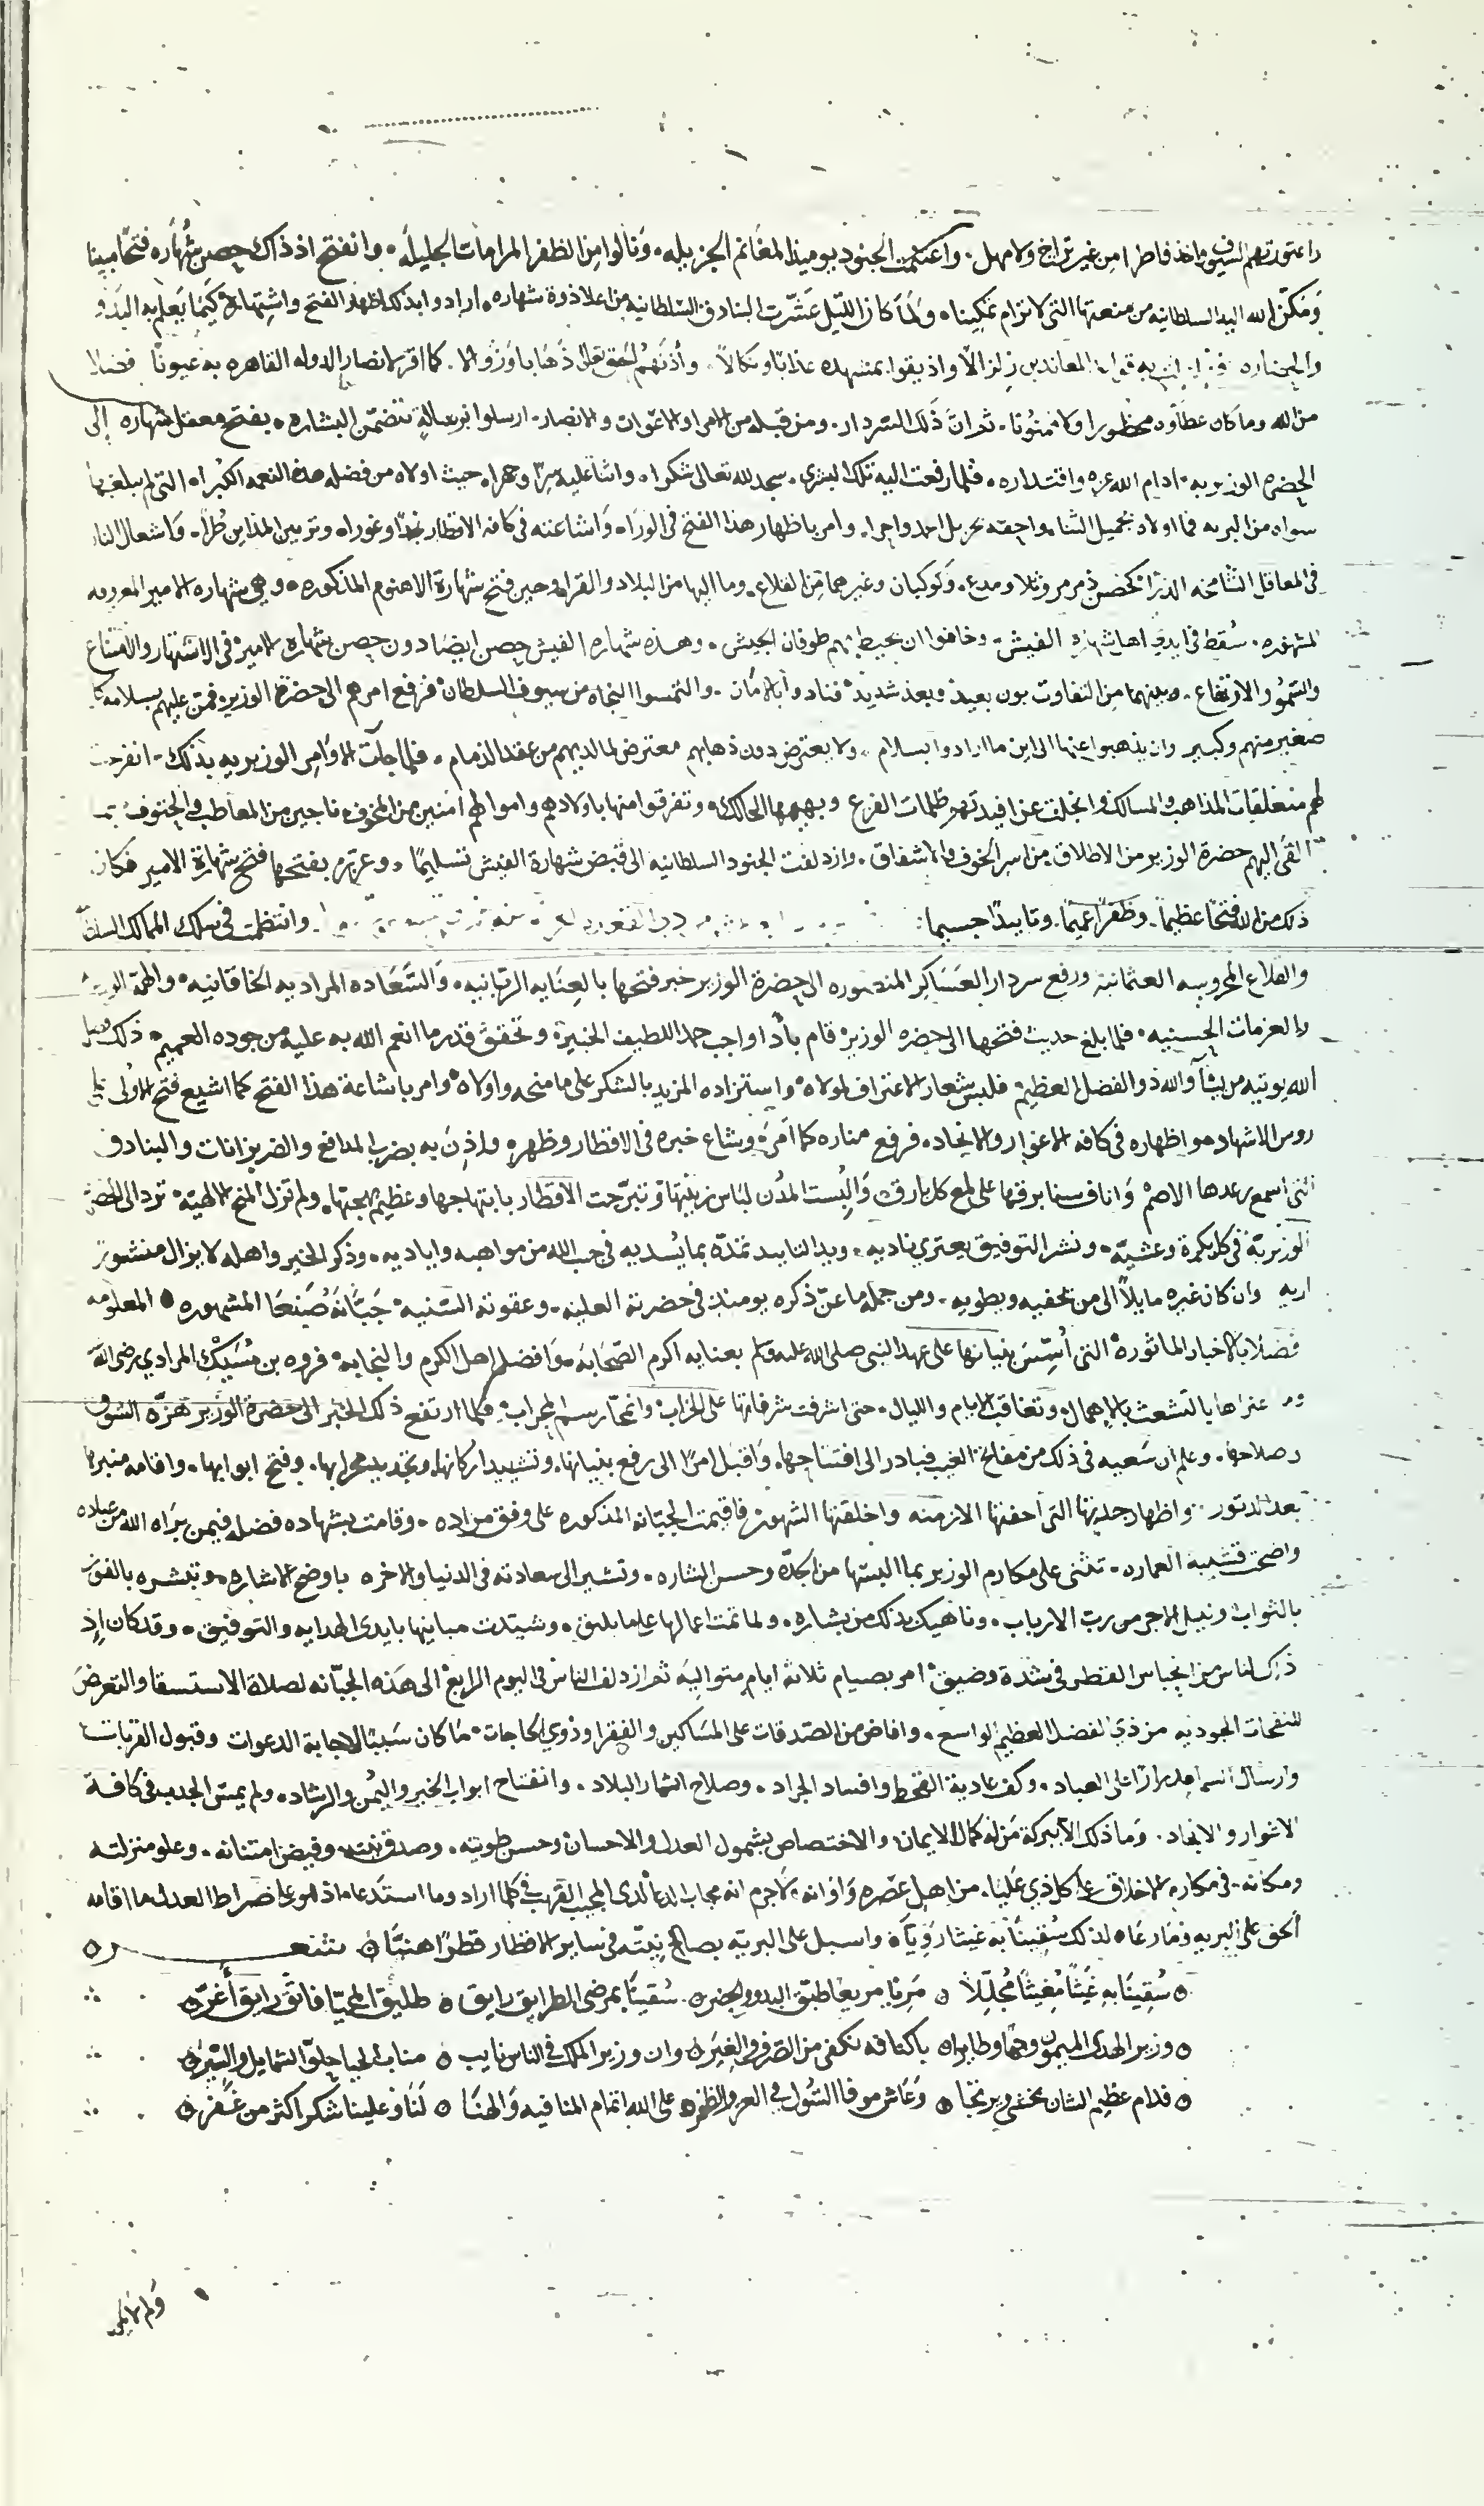 واعتورتهم السيوف ماخذ فاطرا من غير تراج ولا مهل. واغتنمت الجنود يوميذ المغانم الجزيله. ونالوا من الظفر المرامات الجليله. وانفتح اذ ذاك حصن شهاره فتحا مبينا
ومكن الله اليد السلطانيه من منعتها التي لا ترام تمكينا. ولما كان الليل عشرت البنادق السلطانيه من اعلا ذروة شهاره. ارادوا بذلك اظهار الفتح واشتهاره كيما يعلم به البدو
والحضاره المعاندين زلزالا واذيقوا بمشهده عذابا ونكالا. واذنهم الحق تعالى ذهابا وزوالا. كما اقر لانصار الدوله القاهره به عيونا فضلا
من الله وما كان عطاوه محظورا ولا ممنونا. ثم ان ذلك السردار. ومن قبله من الامرا والاعوان والانصار. ارسلوا برسالة تتضمن البشاره. بفتح معقل شهاره إلى
الحضره الوزيريه. ادام الله عزه واقتداره. فلما رفعت اليه تلك البشرى. سجد لله تعالى شكرا. واثنا عليه سرا وجهرا. حيث اولاه من فضله هذه النعمه الكبرا. التي لم يبلغها
سواه من البريه فما اولاه بجميل الثناء واحقه بجزيل احمد واجرا. وامر باظهار هذا الفتح في الورا. واشاعته في كافه الاقطار نجدا وغورا. وتزيين المداين طرا. واشعال النار
في المعاقل الشامخه الذرا كحصن ذمرمر وثلا ومدع. وكوكبان وغيرهما من القلاع. وما اليها من البلاد والقرا. وحين فتح شهارة الاهنوم المذكوره. وهي شهاره الامير المعروفه
المشهوره. سقط في ايدي اهل شهاره الفيش. وخافوا ان يحيط بهم طوفان الجيش. وهذه شهاره الفيش حصن ايضا دون حصن شهاره الامير في الاشتهار والامتناع
والسمو والارتفاع. وبينهما من التفاوت بون بعيد وبعد شديد. فنادوا بالامان. والتمسوا النجاه من سيوف السلطان. فرفع امرهم الى حضرة الوزير. فمن عليهم بسلامه كل
صغير منهم وكبير وان يذهبوا عنها الى اين ما ارادوا بسلام. ولا يعترض دون ذهابهم معترض لما لديهم من عقد الذمام. فلما جاءت الاوامر الوزيريه بذلك. انفرجت
لهم منغلقات المذاهب والمسالك. وانجلت عن افيدتهم ظلمات الفزع وبهيمها الحالك. وتفرقوا منها باولادهم واموالهم امنين من المخوف ناجين من المعاطب والحتوف بما
القى اليهم حضرة الوزير من الاطلاق من اسر الخوف والاشفاق. وازدلفت الجنود السلطانيه الى قبض شهارة الفيش تسليما. وعزتهم بفتحها فتح شهارة الامير فكان
ذلك من الله فتحا عظيما. وظفرا عميما. وتاييدا جسيما. وانتظمت في سلك الممالك السلطا
والقلاع المحروسه العثمانيه ورفع سردار العساكر المنصوره الى حضرة الوزير خبر فتحها بالعنايه الربانيه. والسعاده المراديه الخاقانيه. والهمة
والعزمات الحسنيه. فلما بلغ حديث فتحها الى حضره الوزير قام باداء واجب حمد اللطيف الخبير. وتحقق قدر ما انعم الله به عليه من جوده العميم. ذلك فضل
الله يوتيه من يشاء والله ذو الفضل العظيم. فلبس شعار الاعتراف لمولاه. واستزاده المزيد بالشكر على ما منحه واولاه. وامر باشاعة هذا الفتح كما اشيع فتح الاولى على
روس الاشهاد هو اظهاره في كافه الاغوار والانجاد. فرفع مناره كما امره وشاع خبره في الاقطار وظهر. واذن به بضرب المدافع والضربزانات والبنادق
التي اسمع رعدها الاصم واناف سنا برقها على لمع كل بارق. والبست المدن لباس زينتها. وتبرجت الاقطار بابتهاجها وعظيم بهجتها. ولم تزل المنح الالهيه ترد الى الحضرة
الوزيريه في كل بكرة وعشيه. ونشر التوفيق يعتري ناديه. ويد التاييد تمده بما يسديه في جنب الله من مواهبه واياديه. وذكر الخير واهله لا يزال منشور
اربه وان كان غيره مايلا الى من يخفيه ويطويه. ومن جمله ما عن ذكره يوميذ في حضرته العليه. وعقوته السنيه. جبانة صنعا المشهوره. المعلومه
فضلا بالاخبار الماثورة التي اسس بنيانها على عهد النبي صلى الله عليه وسلم بعنايه اكرم الصحابه. وافضل اهل الكرم والنجابه. فروه بن مسيك المرادي رضي الله
عتراها بالتشعث بالاهمال. وتعاقب الايام والليال. حتى اشرفت شرفاتها على الخراب. وانمحا رسم المحراب. فلما ارتفع ذلك الخبر الى حضرة الوزير هزه الشوق
وصلاحها. وعلم ان سعيه في ذلك من مفاتح الغيب فبادر الى افتتاحها. واقبل امرا الى رفع بنيانها وتشييد اركانها وتجديد محرابها. وفتح ابوابها. واقامه منبرها
بعد الدثور. واظهار جدتها التي اخفتها الازمنه واخلقتها الشهور. فاقيمت الجبانه المذكوره على وفق مراده. وقامت بشهاده فضله فيمن براه الله من عباده
واضحت قشيبه العماره. تثني على مكارم الوزير بما البسها من الجدة وحسن الشاره. وتشير الى سعادته في الدنيا والاخره باوضح الاشاره. وتبشره بالفوز
بالثواب ونيل الاجر من رب الارباب. وناهيك بذلك من بشاره. ولما تمت اعمالها على ما يليق. وشيدت مبانيها بايدي الهدايه والتوفيق. وقد كان إذ
ذاك الناس من انحباس القطر في شدة وضيق امر بصيام ثلاثه ايام متواليه ثم ازدلف الناس في اليوم الرابع الى هذه الجبانه لصلاة الاستسقا والتعرض
للنفحات الجوديه من ذي الفضل العظيم الواسع. وافاض من الصدقات على المساكين والفقرا وذوي الحاجات. ما كان سببا لاجابة الدعوات وقبول القربات
وارسال السما مدرارا على العباد. وكف عادية القحط وافساد الجراد. وصلاح اثمار البلاد. وانفتاح ابواب الخير واليمن والرشاد. ولم يمس الجدب في كافة
الاغوار والانجاد. وما ذلك الا ببركة من له كمال الايمان. والاختصاص بشمول العدل والاحسان وحسن طويته. وصدق نيته وفيض امتنانه. وعلو منزلته
ومكانه. في مكارم الاخلاق على كل ذي عليا. من اهل عصره واوانه. لا جرم انه مجاب الدعا لدى المجيب القريب في كلما اراد وما استدعاه اذ هو على صراط العدل ما اقامه
الحق على البريه ومارعاه لذلك سقينا به غيثا رويا. واسبل على البريه بصالح نيته في ساير الاقطار قطرا هنيا شعر
سقينا به غيثا مغيثا مجللا مريا مريعا طبق البدو والحضر سقينا بمرضى الطرايق رايق طليق المحيا فايق رايق أغر
وزير الهدى الميمون وجها وطايرا باكنافه نكفى من الصرف والغير وان وزير الملك في الناس نايب مناب الحيا حلو الشمايل والسير
فدام عظيم الشان يخشى ويرتجا وعاش موفا السول في العز والظفر على الله اتمام المنا فيه والهنا لنا وعلينا شكر اكثر من غفر
ولم لا يكو